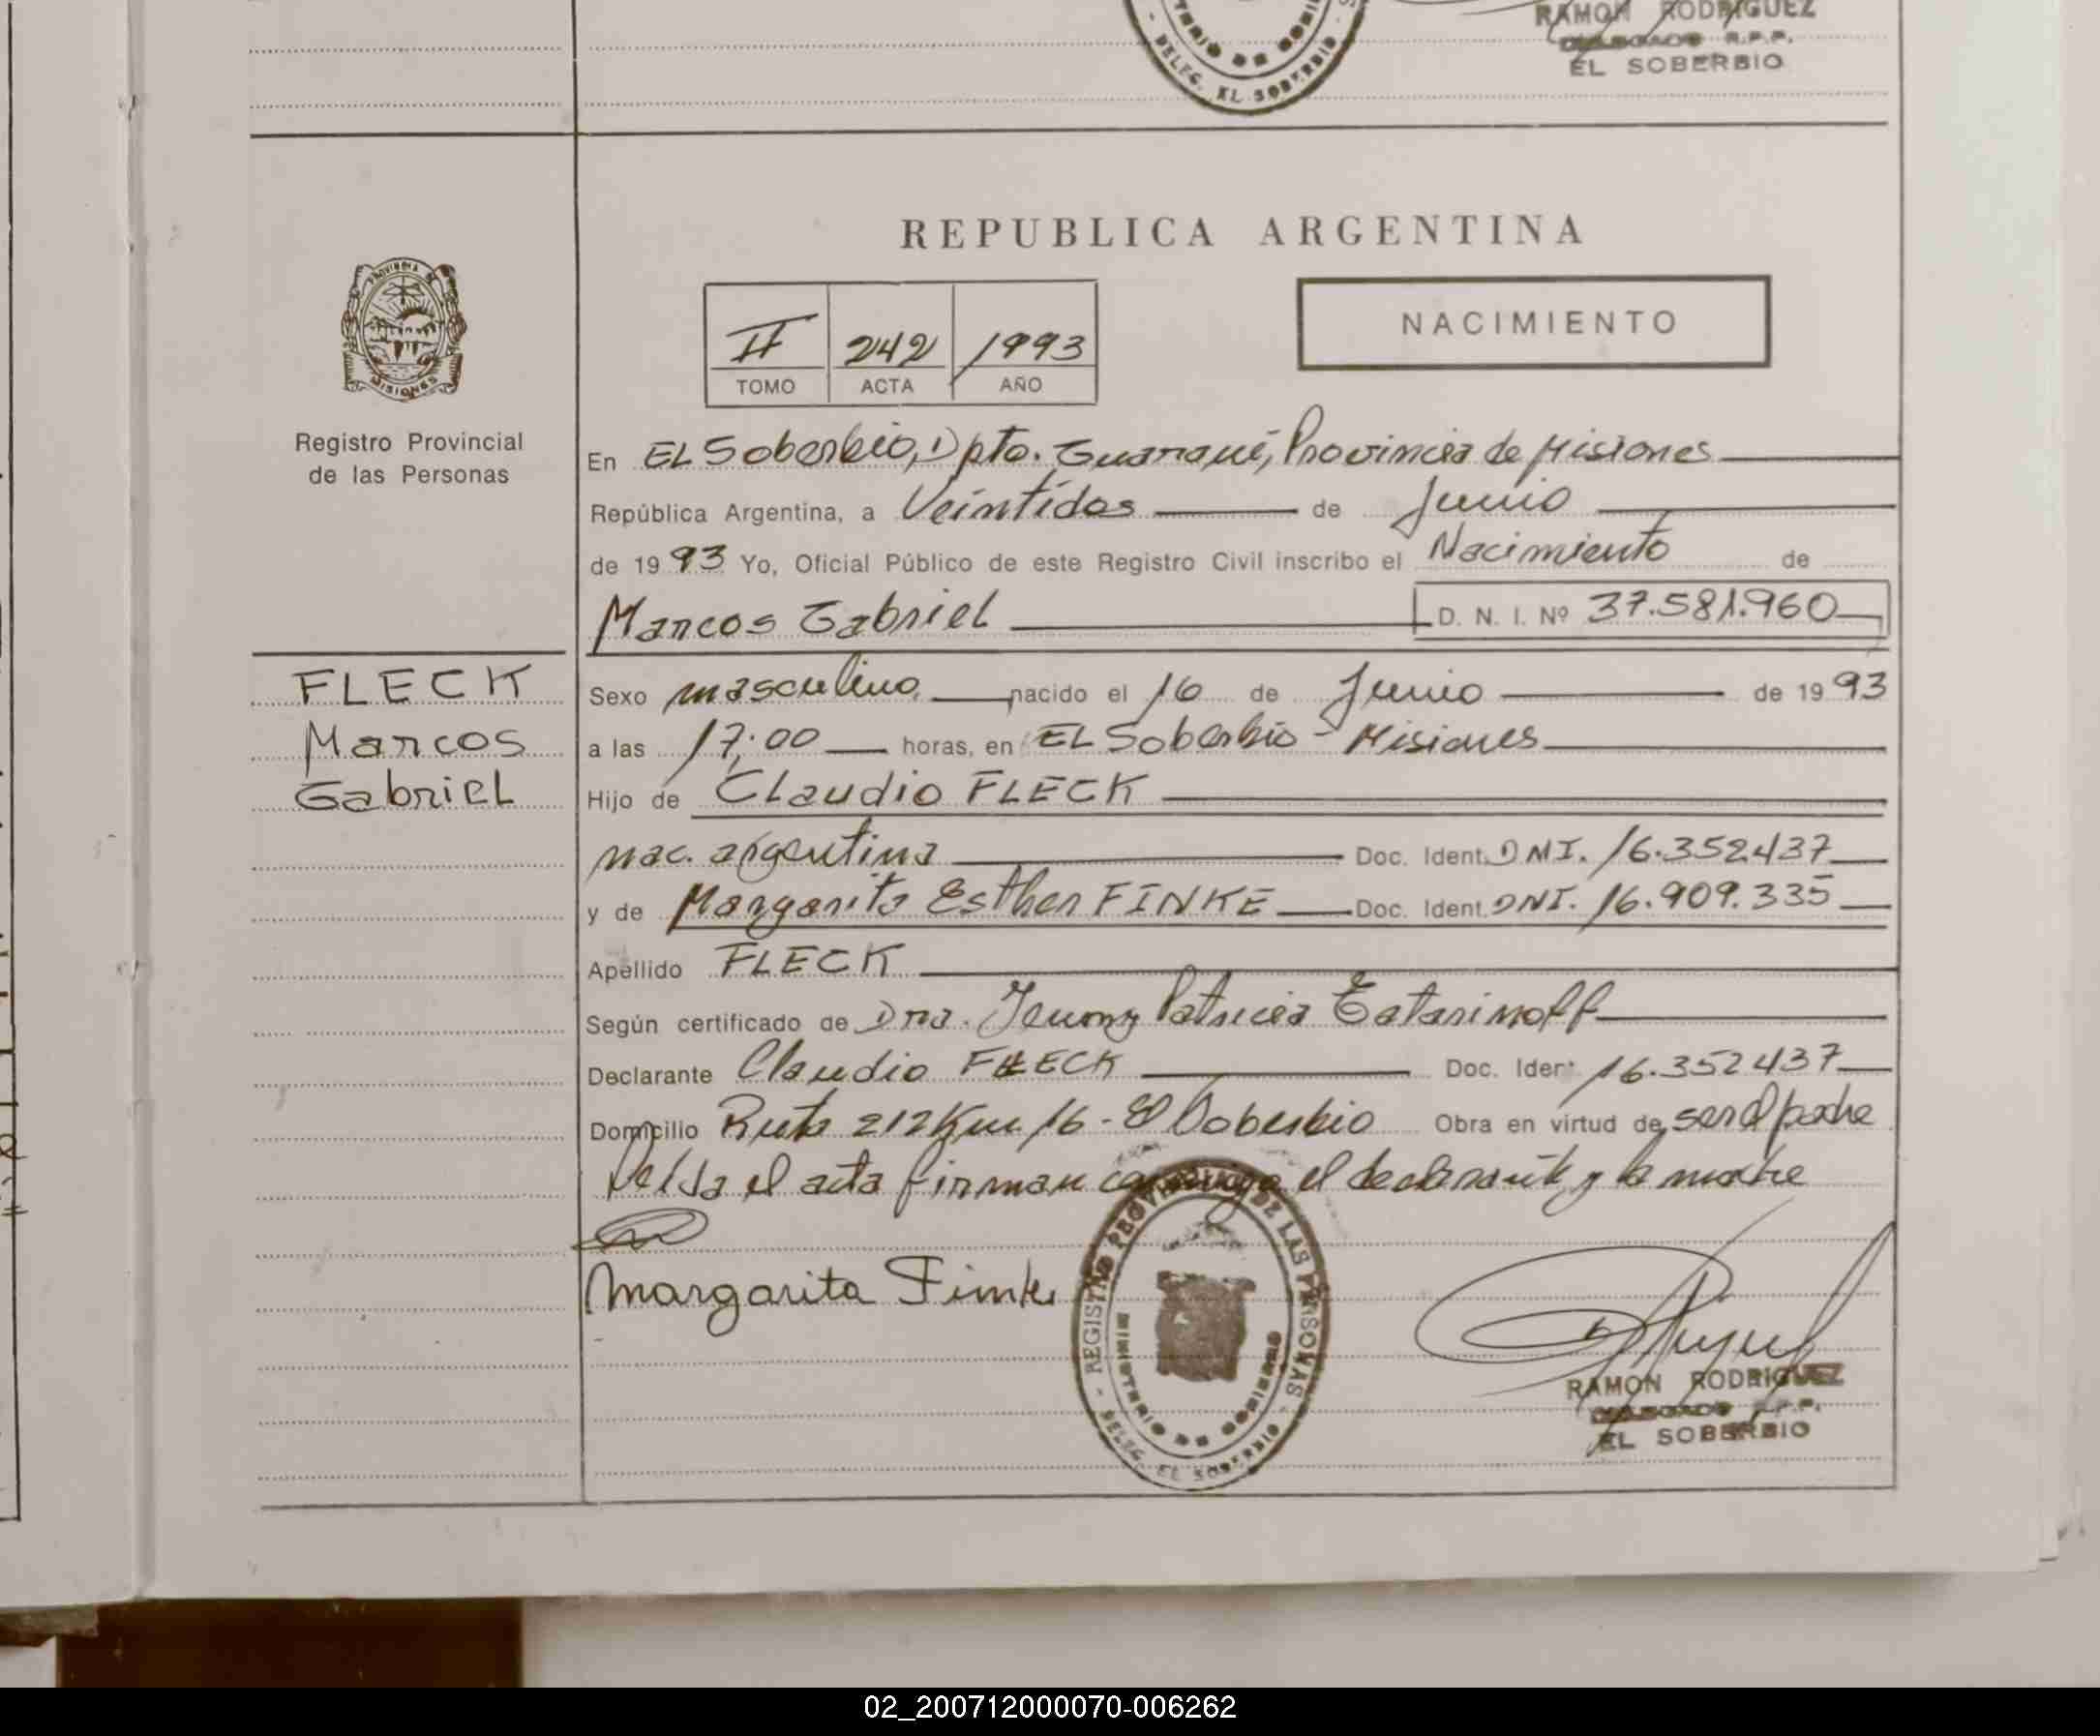 RAMON RODRIGUEZ
R.P.P.
EL SOBERBIO
DELEG. EL SOBERBIO
REPUBLICA ARGENTINA
PROVINCIA DE
MISIONES
Registro Provincial
de las Personas
II 242 1993
TOMO ACTA AÑO
NACIMIENTO
En EL Soberbio, Dpto. Guaraní, Provincia de Misiones
República Argentina, a Veintidos de Junio
de 1993 Yo, Oficial Público de este Registro Civil inscribo el Nacimiento de
Marcos Gabriel D. N. I. Nº 37.581.960
FLECK
Marcos
Gabriel
Sexo masculino nacido el 16 de Junio de 1993
a las 17:00 horas, en EL Soberbio - Misiones
Hijo de Claudio FLECK
nac. argentina Doc. Ident. DNI. 16.352.437
y de Margarita Esther FINKE Doc. Ident. DNI. 16.909.335
Apellido FLECK
Según certificado de Dra. Jenny Patricia
Declarante Claudio FLECK Doc. Ident 16.352437
Domicilio Ruta 212 Km 16 - El Soberbio Obra en virtud de ser el padre
Leida el acta firman conmigo el declarante y la madre
Margarita Finke
REGISTRO PROVINCIAL DE LAS PERSONAS
MINISTERIO DE GOBIERNO
DELEG. EL SOBERBIO
RAMON RODRIGUEZ
R.P.P.
EL SOBERBIO
02_200712000070-006262